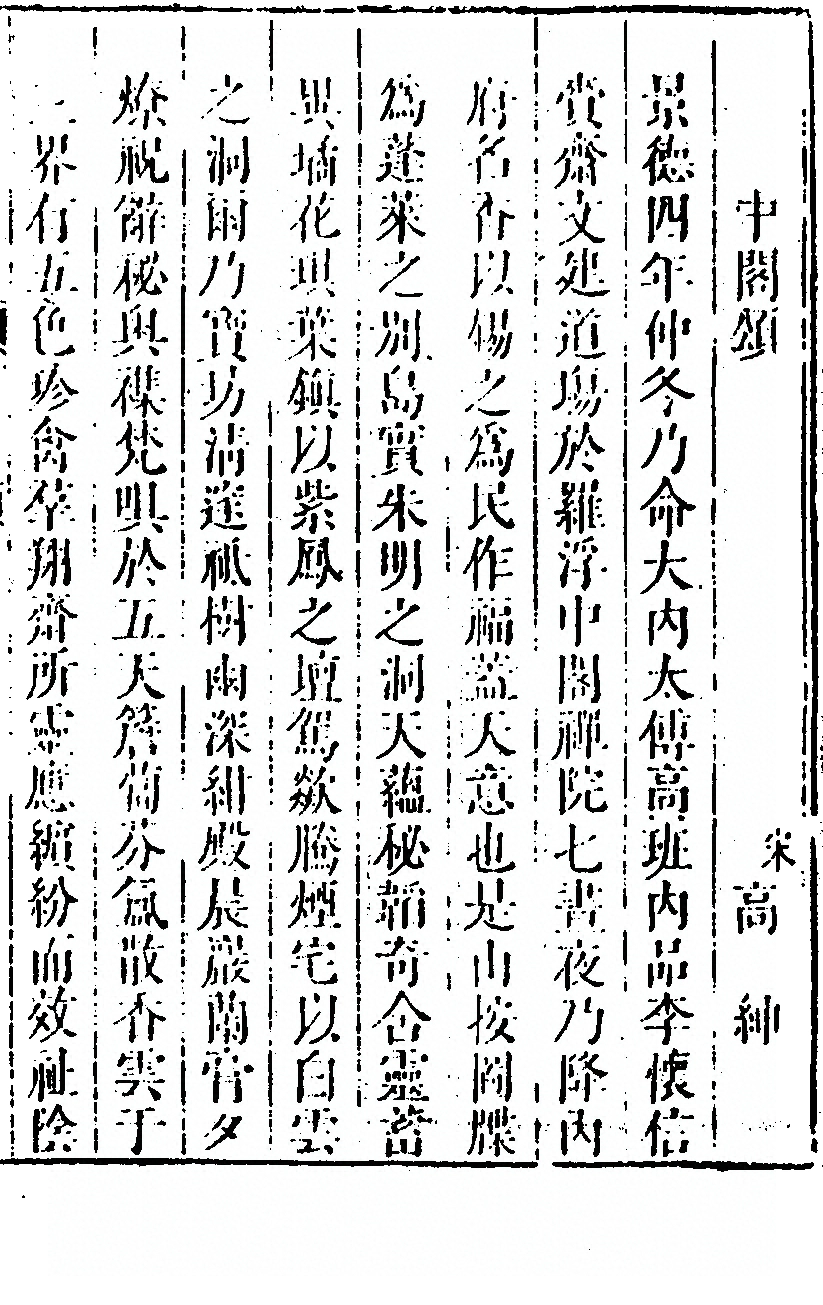 中閣頌 宋高紳
景德四年仲冬乃命大內太傅高班內品李懷信
賫齋文建道場於羅浮中閣禪院七晝夜乃降內
府名香以錫之為民作福蓋天意也是山按圖牒
為蓬萊之別島實朱明之洞天蘊秘韜奇含靈蓄
異墦花琪葉鎮以紫鳳之壇駕歘騰煙宅以白雲
之洞爾乃寶坊清邃祇樹幽深紺殿晨嚴蘭膏夕
燎祝篰秘典襍梵唄於五天簷蔔芬氳散香雲于
上界有五色珍禽萃翔齋所靈應繽紛而效祉陰